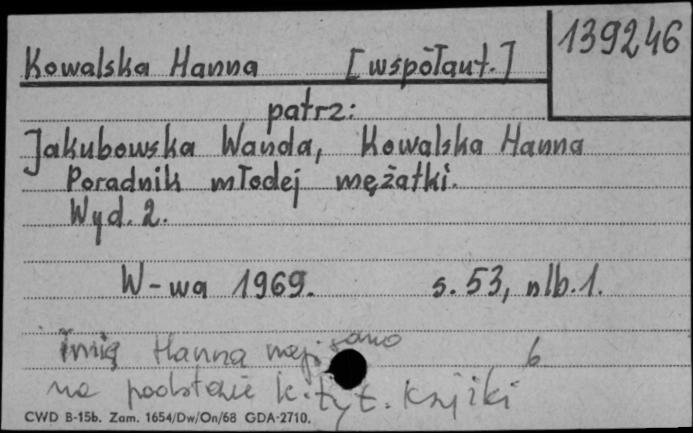 139246
Kowalska Hanna [współaut.]
patrz:
Jakubowska Wanda, Kowalska Hanna
Poradnik młodej mężatki.
Wyd. 2.
W-wa 1969. s. 53, nlb. 1.
Imię Hanna
6
na podstawie k. tyt. książki
CWD B-15b. Zam. 1654/Dw/On/68 GDA-2710.